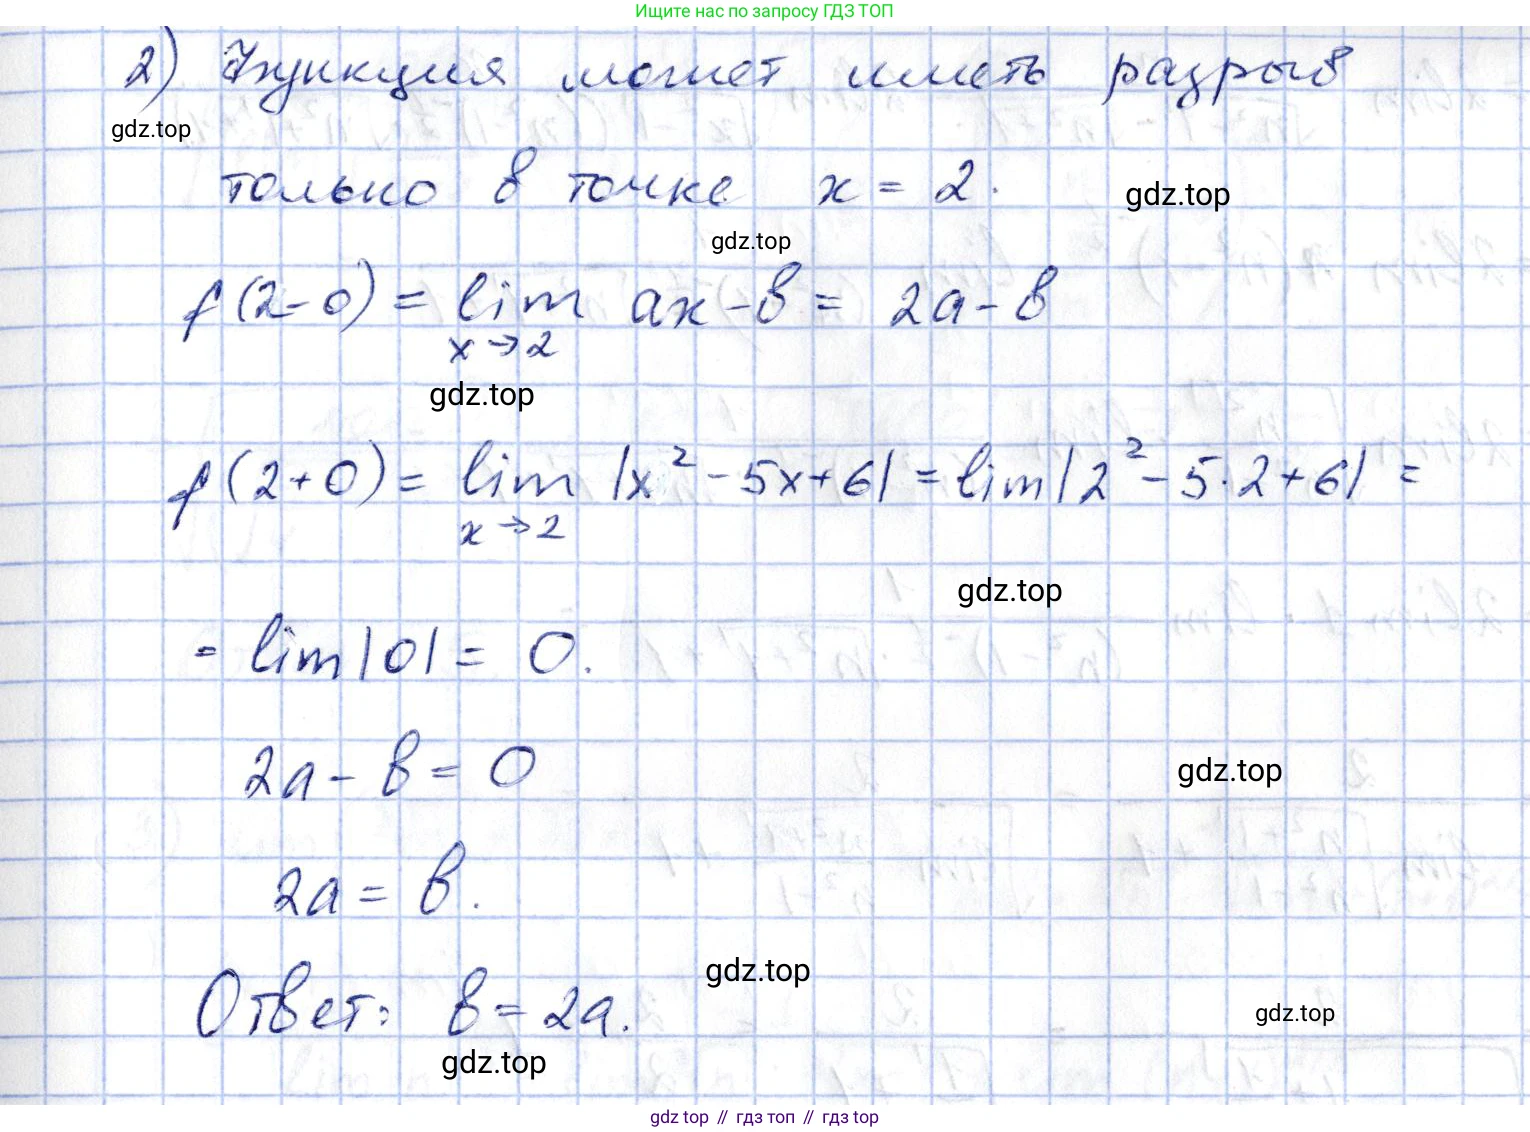 Ищите нас по запросу ГДЗ ТОП
2) Функция может иметь разрыв
gdz.top
только в точке x = 2.
gdz.top
gdz.top
f(2-0) = lim ax - b = 2a - b
x→2
gdz.top
f(2+0) = lim |x² - 5x + 6| = lim |2² - 5·2 + 6| =
x→2
gdz.top
= lim |0| = 0.
2a - b = 0
gdz.top
2a = b.
gdz.top
Ответ: b = 2a.
gdz.top
gdz.top
gdz top // гдз топ // гдз top